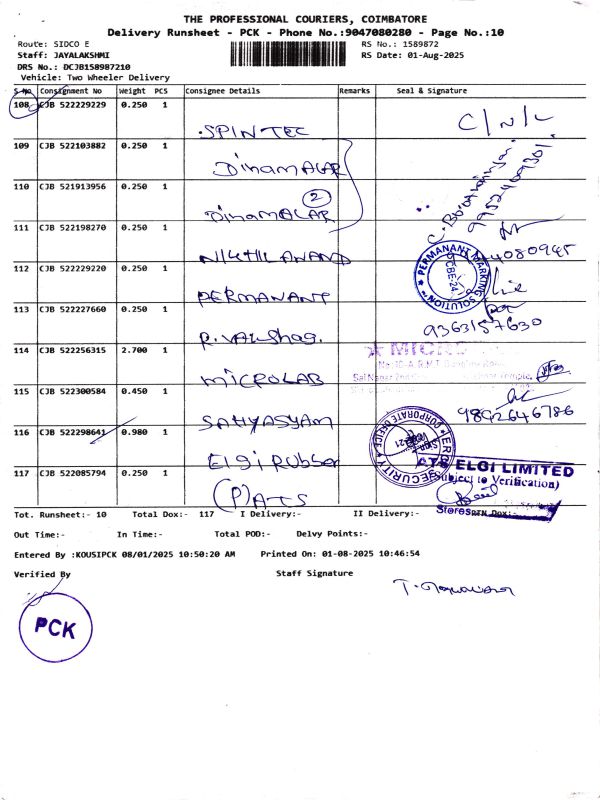 THE PROFESSIONAL COURIERS, COIMBATORE
Delivery Runsheet - PCK - Phone No.:9047080280 - Page No.:10
Route: SIDCO E
RS No.: 1589872
Staff: JAYALAKSHMI
RS Date: 01-Aug-2025
DRS No.: DCJB158987210
Vehicle: Two Wheeler Delivery
S No Consignment No Weight PCS Consignee Details Remarks Seal & Signature
108 CJB 522229229 0.250 1
SPINTEC
C/N/L
109 CJB 522103882 0.250 1
DinamaLAR
110 CJB 521913956 0.250 1
2
DinamALAR
111 CJB 522198270 0.250 1
NIKHIL ANAND
112 CJB 522229220 0.250 1
PERMANANT MARKING SOLUTION
CBE-24
PERMANANT
113 CJB 522227660 0.250 1
9363157630
R. VAISHAG.
114 CJB 522256315 2.700 1
MICROLAB
115 CJB 522300584 0.450 1
9892646786
SATHYASYAM
116 CJB 522298641 0.980 1
CORPORATE OFFICE
SECURITY
ELGi RUBBER
ATS ELGI LIMITED
(Subject to Verification)
117 CJB 522085794 0.250 1
(P) ATS
Stores
Tot. Runsheet:- 10 Total Dox:- 117 I Delivery:- II Delivery:- RTN Dox:-
Out Time:- In Time:- Total POD:- Delvy Points:-
Entered By :KOUSIPCK 08/01/2025 10:50:20 AM Printed On: 01-08-2025 10:46:54
Verified By Staff Signature
PCK